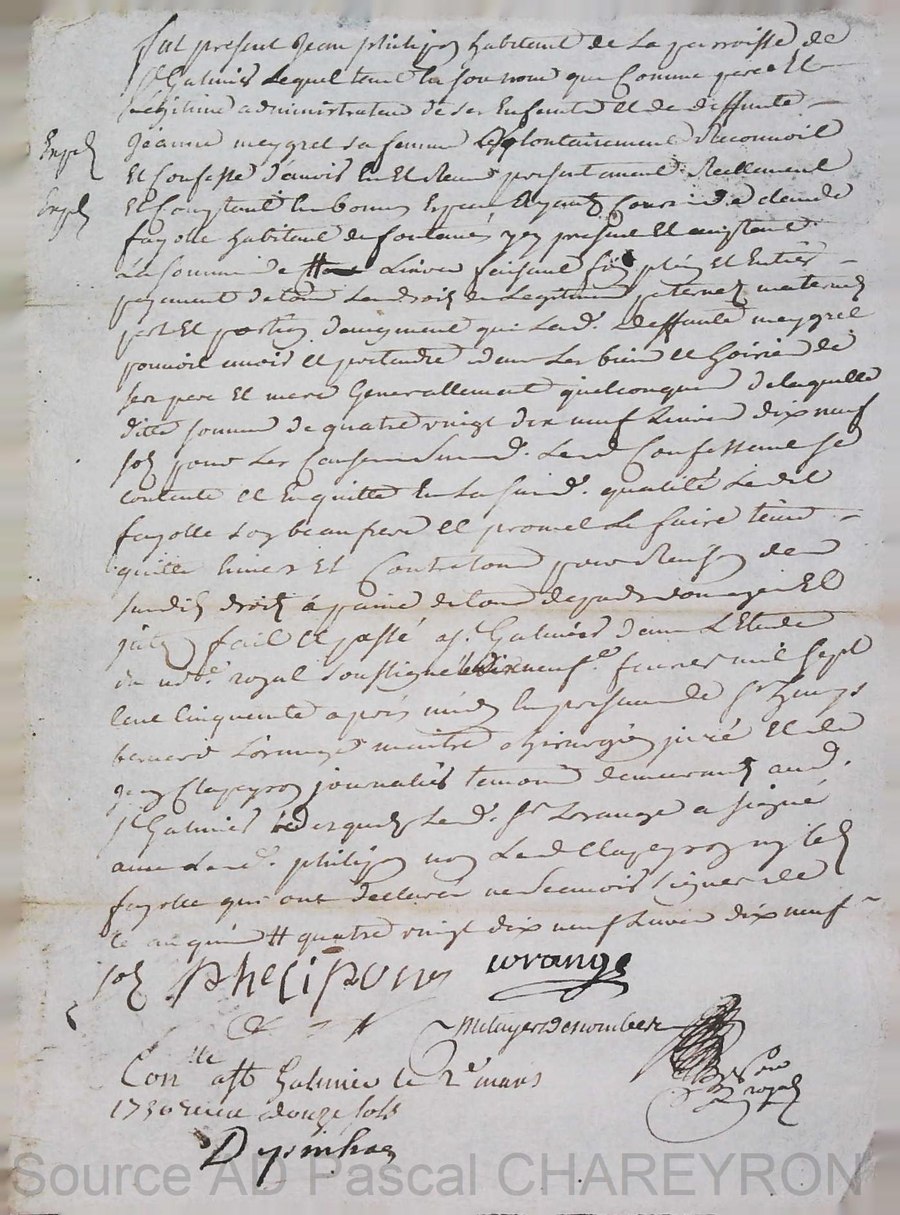 fut present Jean philipon habitant de La parroisse de
St Galmier Lequel tant en son nom que Comme pere Et
Legitime administrateur de ses Enfants Et de deffunte
Jeanne meygret sa femme volontairement Reconnoit
Et Confesse d'avoir Eu Et Receu presentament Reellement
Et Comptant En bonnes Especes Ayants Cours de claude
fayolle habitant de fontanes yey present Et acceptant
La somme de # Livres faisant fin plein et Entier
payement de tous Les droits de Legitime paternels maternels
part Et portion d'augment que Lad. deffunte meygret
pouvoit avoir et pretendre dans Les biens et hoiries de
ses pere Et mere Generallement quelconques de laquelle
ditte somme de quatre vingt dix neuf Livres dix neuf
sols pour Les Causes Susd. Led Confessant se
contente et En quitte En La susd. qualité Led dit
fayolle son beaufrere et promet Le faire tenir
quitte Envers Et Contre tous pour Raison des
susdits droits à paine de tous depands domages Et
jnterets fait et passé a St Galmier dans L'Etude
du not. royal soussigné Le dix neuf fevrier mil sept
Cent Cinquante apres midy En presence de Sr
bernard Lorange maitre chirurgien juré Et de
Jean Clapeyron journalier temoins demeurants aud.
St Galmier desquels Led. Sr Lorange a signé
avec Led. philipon non Led Clapeyron ny Led
fayolle qui ont declaré ne Scavoir signer de
ce enquis # quatre vingt dix neuf Livres dix neuf
sols Phelipon Lorange
Conlle a St Galmier le 2e mars
1750 Receu douze sols
nore
royal
Source AD Pascal CHAREYRON